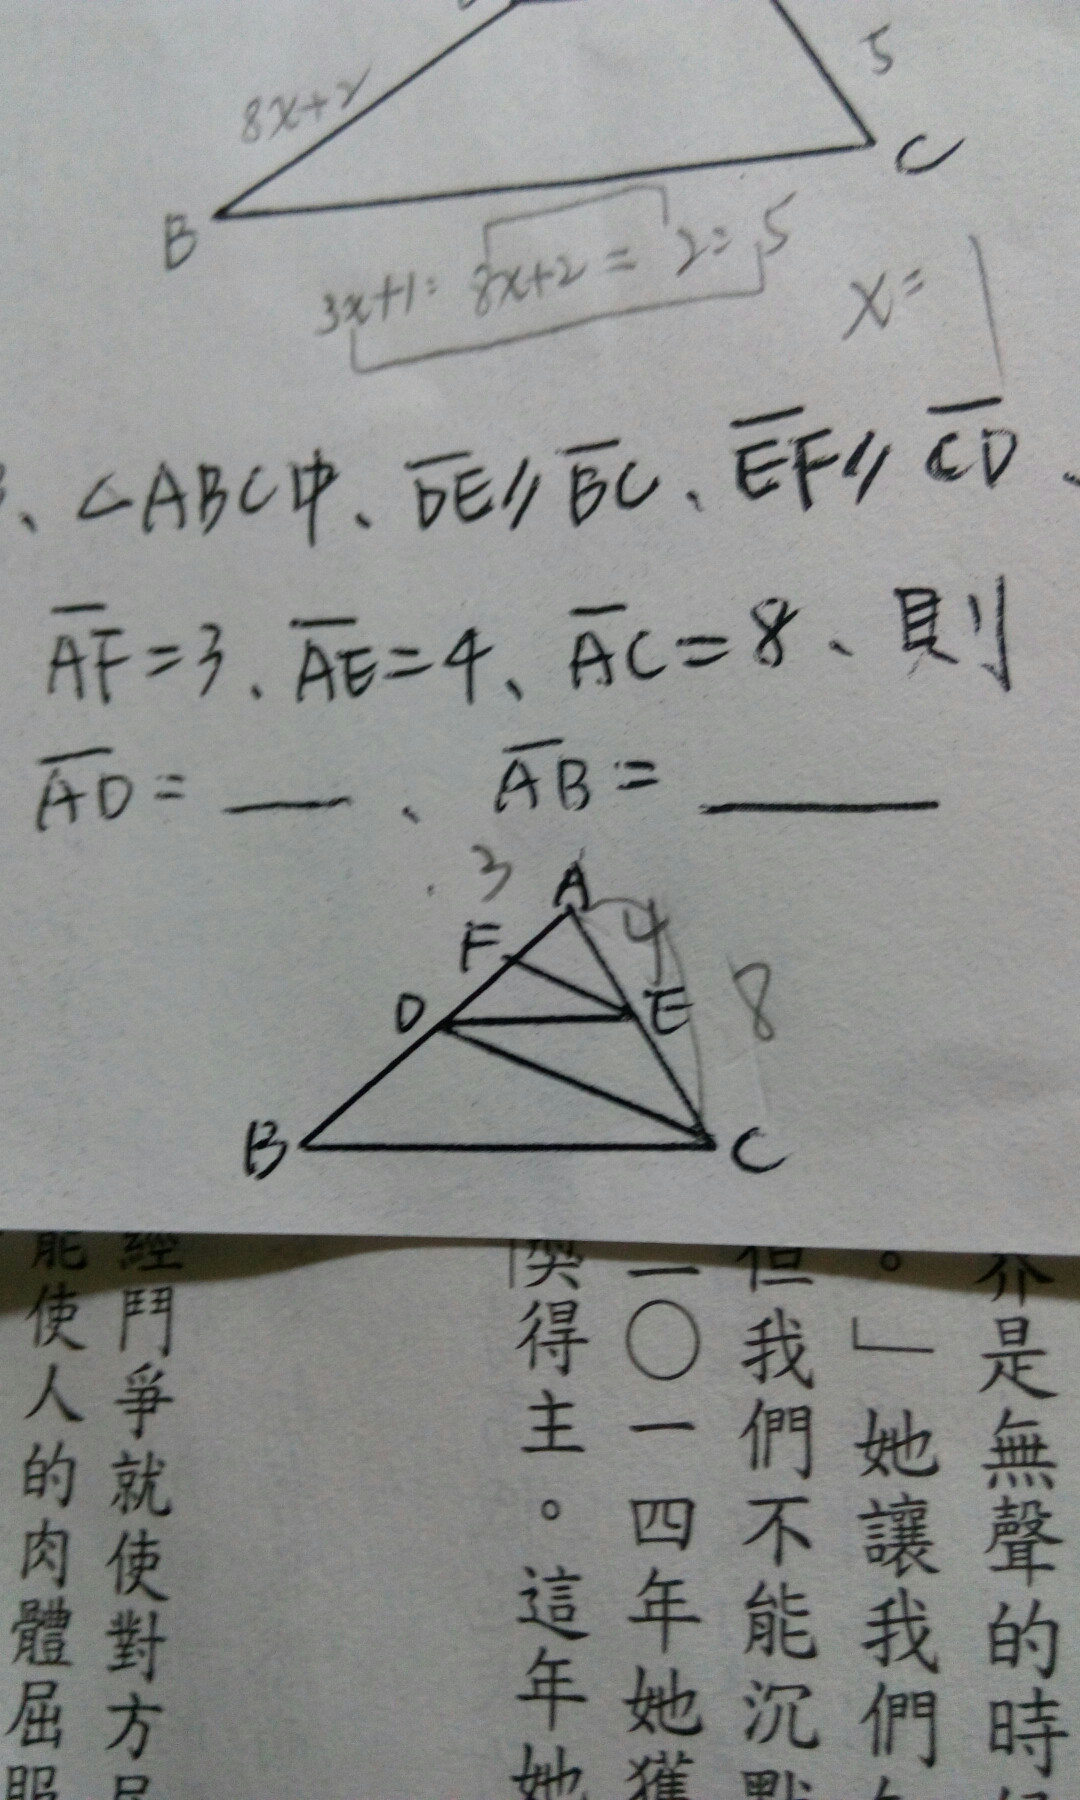 8x+2
5
C
B
3x+1:8x+2=2:5
x=1
、△ABC中、DE//BC、EF//CD、
AF=3、AE=4、AC=8、則
AD=＿＿、AB=＿＿＿
3
A
F
4
D
E
8
B
C
介是無聲的時
。」她讓我們
但我們不能沉默
二〇一四年她獲
得主。這年她
經鬥爭就使對方
能使人的肉體屈服